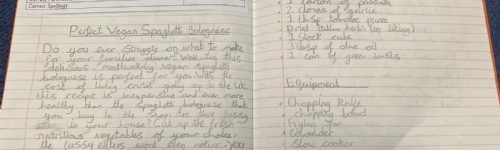 Correct Spellings
Perfect Vegan Spaghetti Bolognese
Do you ever struggle on what to make
for your families dinner? Well this
delicious, mothwatering vegan spaghetti
bolognese is perfect for you. With the
cost of living crisis going up
this recipe is inexpensive and even more
healthy than the spaghetti bolognese that
you buy in the shop. Are there fussy
in your house? Cut up the fresh
nutritious vegetables of your choice
the fussy eaters wont even notice.
1 carton of passata
2 cloves of garlic
1 tbsp tomato puree
Dried Italian herbs (to liking)
1 stock cube
3 tbsp of olive oil
1 can of green lentils
Equipment
Chopping knife
chopping board
Frying pan
Colander
Slow cooker